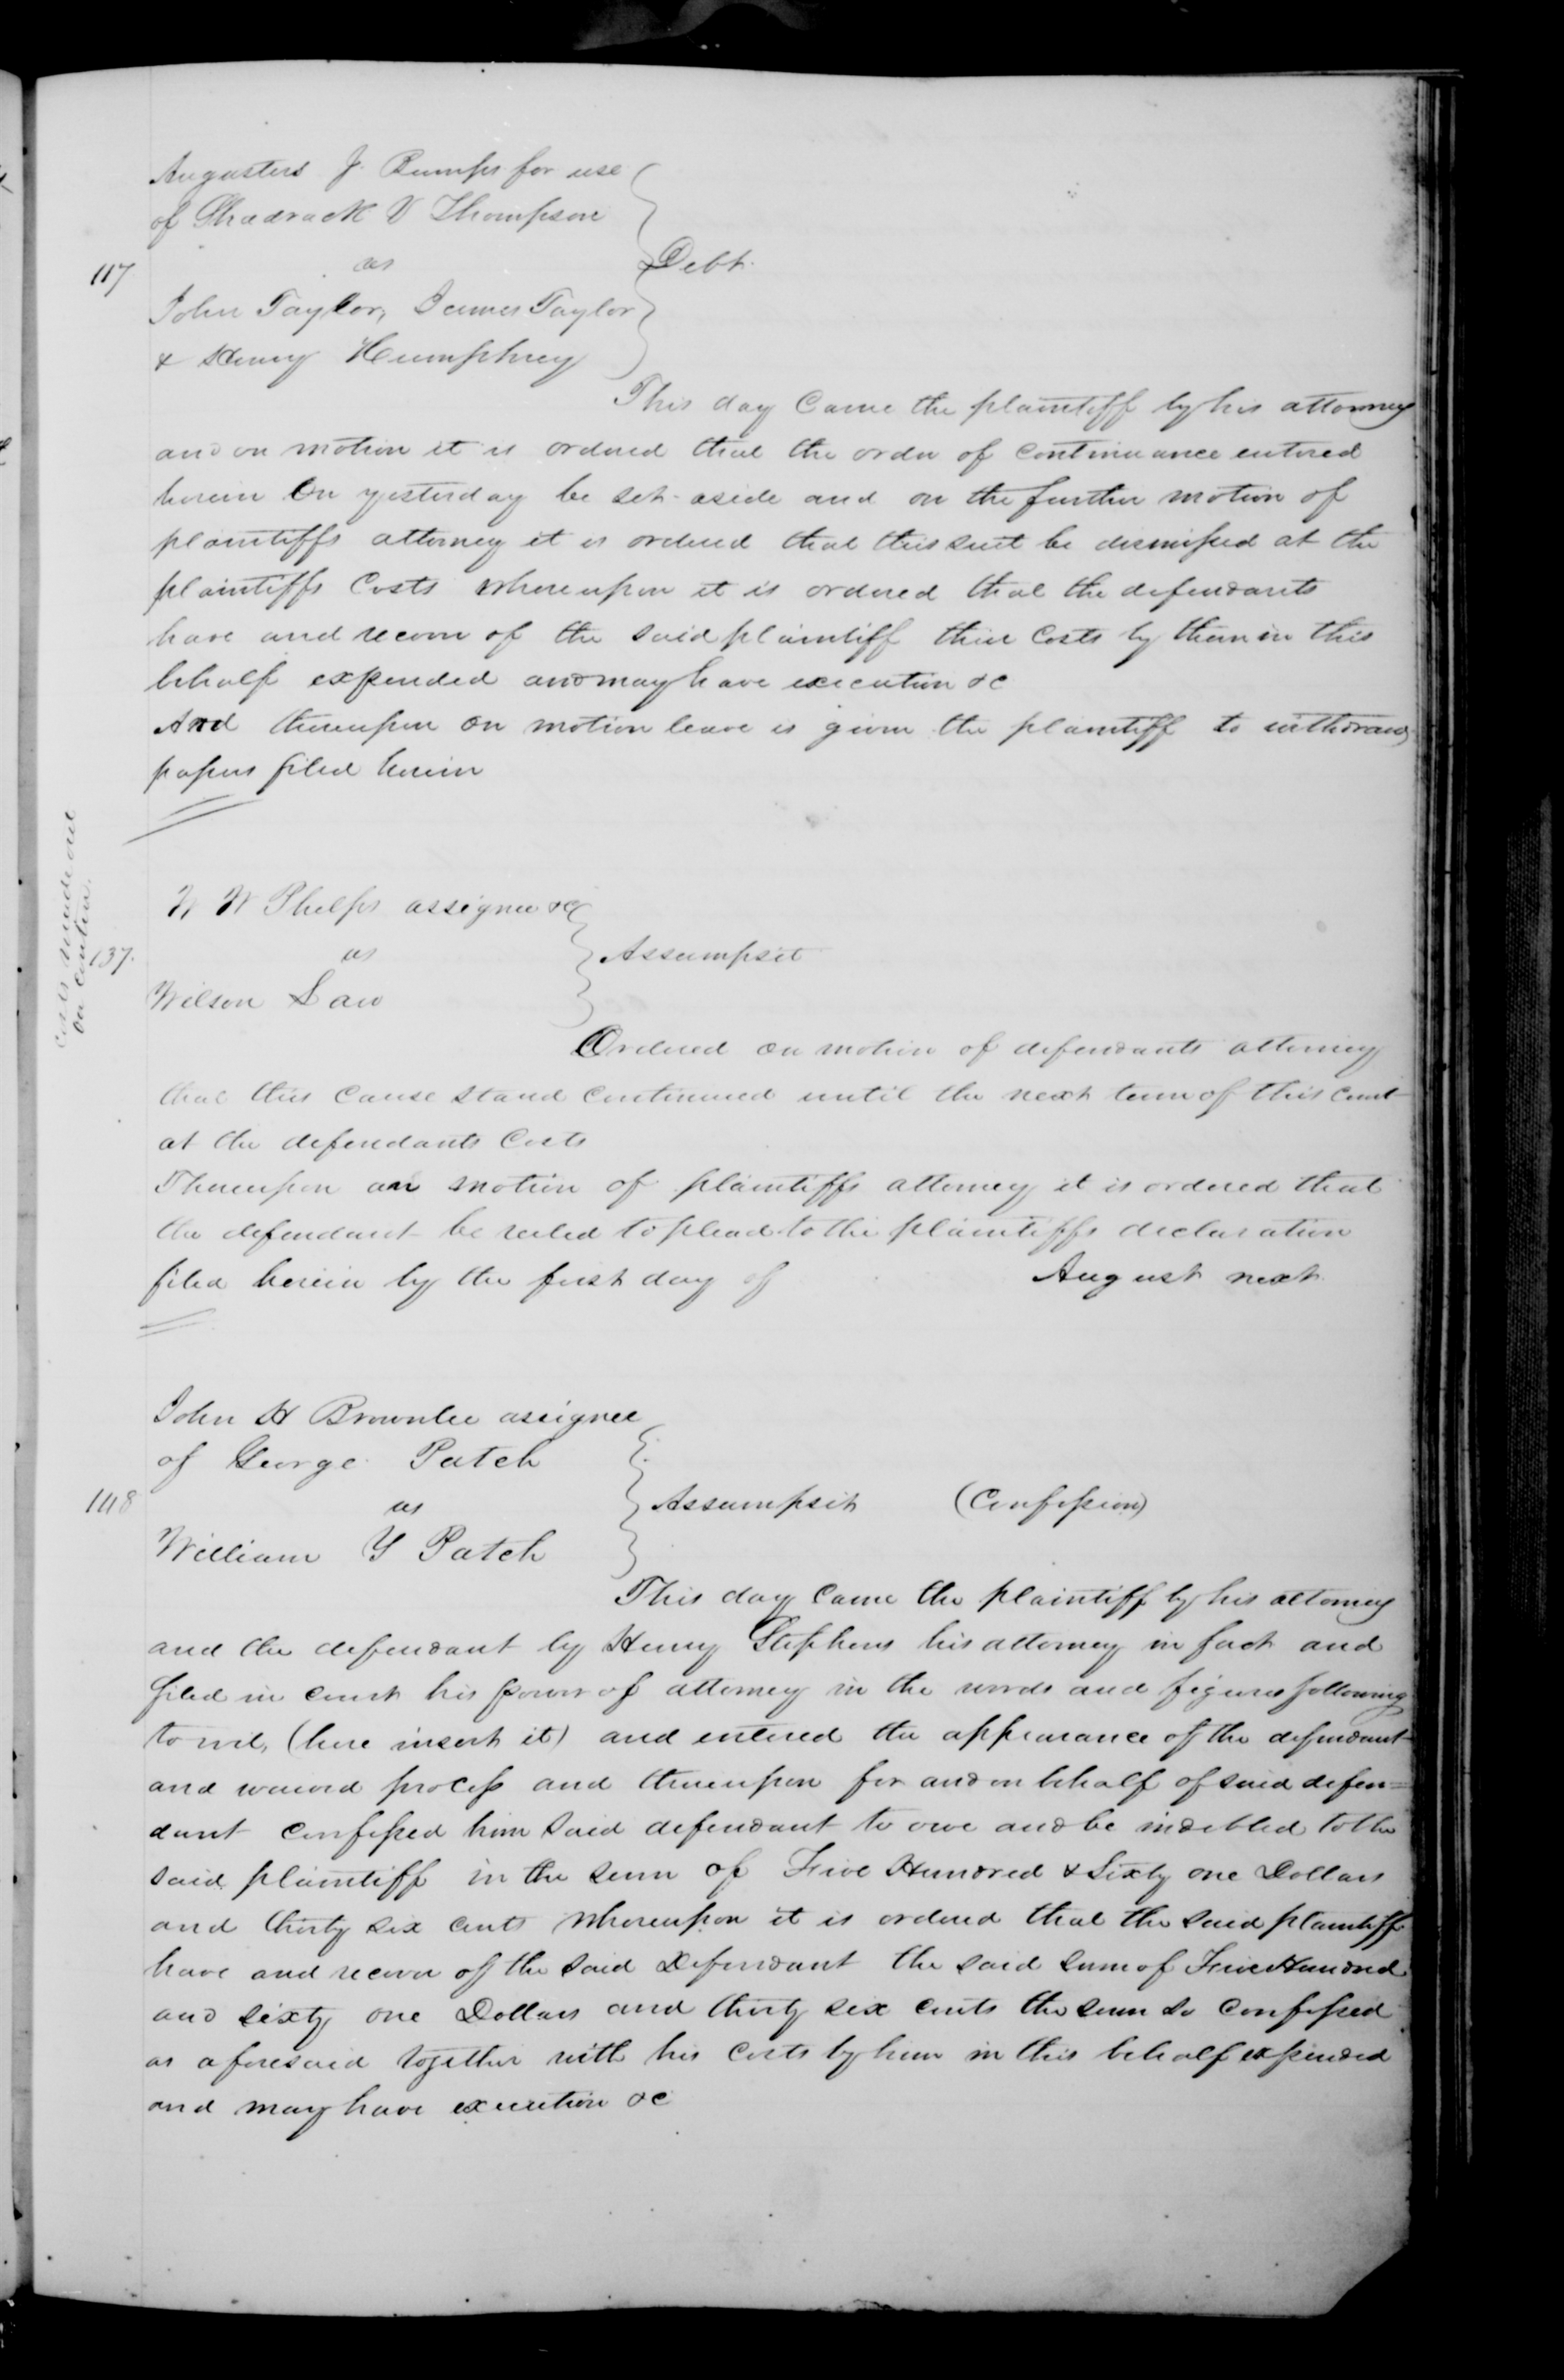 Augusters J. Bumps for use
of Shadrack V Thompson
vs
Debt.
117
John Taylor, James Taylor
& Henry Humphrey
This day Came the plaintiff by his attorney
and on motion it is ordered that the order of Continuance entered
herein On yesterday be set aside and on the further motion of
plaintiffs attorney it is ordered that this suit be dismissed at the
plaintiffs Costs whereupon it is ordered that the defendants
have and recover of the said plaintiff their Costs by them in this
behalf expended and may have execution &c
And thereupon on motion leave is given the plaintiff to withdraw
papers filed herein
Costs made out
on contin.
W W Phelps assignee &c
137.
vs
Assumpsit
Wilson Law
Ordered on motion of defendants attorney
that this Cause stand Continued until the next term of this Court
at the defendants Costs
Thereupon on motion of plaintiffs attorney it is ordered that
the defendant be ruled to plead to the plaintiffs declaration
filed herein by the first day of August next
John H Brownlee assignee
of George Patch
118
vs
Assumpsit (Confession)
William Y Patch
This day Came the plaintiff by his attorney
and the defendant by Henry Stephens his attorney in fact and
filed in Court his power of attorney in the words and figures following
to wit, (here insert it) and entered the appearance of the defendant
and waived process and thereupon for and on behalf of said defen=
dant Confessed him said defendant to owe and be indebted to the
said plaintiff in the sum of Five Hundred & Sixty one Dollars
and thirty six cents whereupon it is ordered that the said plaintiff
have and recover of the said Defendant the said sum of Five Hundred
and sixty one Dollars and thirty six cents the sum so Confessed
as aforesaid together with his Costs by him in this behalf expended
and may have execution &c